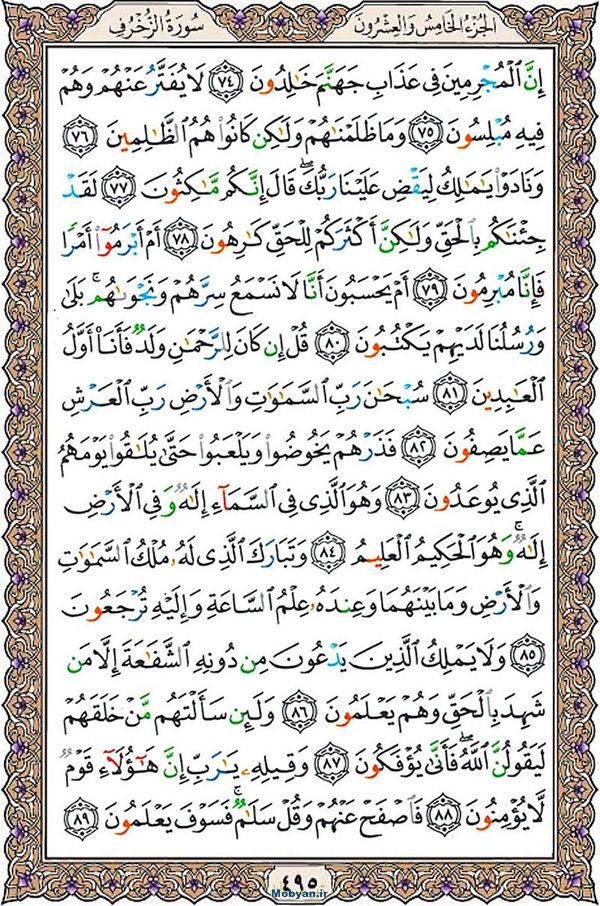 الجزء الخامس والعشرون
سورة الزخرف
إِنَّ ٱلْمُجْرِمِينَ فِى عَذَابِ جَهَنَّمَ خَٰلِدُونَ ٧٤ لَا يُفَتَّرُ عَنْهُمْ وَهُمْ
فِيهِ مُبْلِسُونَ ٧٥ وَمَا ظَلَمْنَٰهُمْ وَلَٰكِن كَانُوا۟ هُمُ ٱلظَّٰلِمِينَ ٧٦
وَنَادَوْا۟ يَٰمَٰلِكُ لِيَقْضِ عَلَيْنَا رَبُّكَ ۖ قَالَ إِنَّكُم مَّٰكِثُونَ ٧٧ لَقَدْ
جِئْنَٰكُم بِٱلْحَقِّ وَلَٰكِنَّ أَكْثَرَكُمْ لِلْحَقِّ كَٰرِهُونَ ٧٨ أَمْ أَبْرَمُوٓا۟ أَمْرًا
فَإِنَّا مُبْرِمُونَ ٧٩ أَمْ يَحْسَبُونَ أَنَّا لَا نَسْمَعُ سِرَّهُمْ وَنَجْوَىٰهُم ۚ بَلَىٰ
وَرُسُلُنَا لَدَيْهِمْ يَكْتُبُونَ ٨٠ قُلْ إِن كَانَ لِلرَّحْمَٰنِ وَلَدٌ فَأَنَا۠ أَوَّلُ
ٱلْعَٰبِدِينَ ٨١ سُبْحَٰنَ رَبِّ ٱلسَّمَٰوَٰتِ وَٱلْأَرْضِ رَبِّ ٱلْعَرْشِ
عَمَّا يَصِفُونَ ٨٢ فَذَرْهُمْ يَخُوضُوا۟ وَيَلْعَبُوا۟ حَتَّىٰ يُلَٰقُوا۟ يَوْمَهُمُ
ٱلَّذِى يُوعَدُونَ ٨٣ وَهُوَ ٱلَّذِى فِى ٱلسَّمَآءِ إِلَٰهٌ وَفِى ٱلْأَرْضِ
إِلَٰهٌ ۚ وَهُوَ ٱلْحَكِيمُ ٱلْعَلِيمُ ٨٤ وَتَبَارَكَ ٱلَّذِى لَهُۥ مُلْكُ ٱلسَّمَٰوَٰتِ
وَٱلْأَرْضِ وَمَا بَيْنَهُمَا وَعِندَهُۥ عِلْمُ ٱلسَّاعَةِ وَإِلَيْهِ تُرْجَعُونَ
٨٥ وَلَا يَمْلِكُ ٱلَّذِينَ يَدْعُونَ مِن دُونِهِ ٱلشَّفَٰعَةَ إِلَّا مَن
شَهِدَ بِٱلْحَقِّ وَهُمْ يَعْلَمُونَ ٨٦ وَلَئِن سَأَلْتَهُم مَّنْ خَلَقَهُمْ
لَيَقُولُنَّ ٱللَّهُ ۖ فَأَنَّىٰ يُؤْفَكُونَ ٨٧ وَقِيلِهِۦ يَٰرَبِّ إِنَّ هَٰٓؤُلَآءِ قَوْمٌ
لَّا يُؤْمِنُونَ ٨٨ فَٱصْفَحْ عَنْهُمْ وَقُلْ سَلَٰمٌ ۚ فَسَوْفَ يَعْلَمُونَ ٨٩
٤٩٥
Mobyan.ir